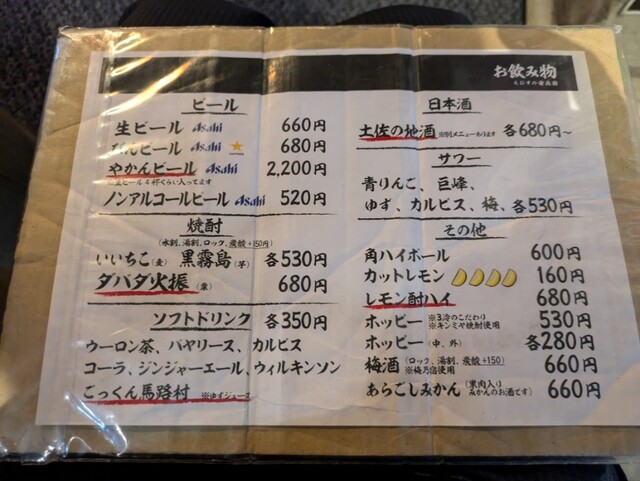 お飲み物
ビール
生ビール Asahi 660円
びんビール Asahi 680円
やかんビール Asahi 2,200円
※生ビール4杯くらい入ってます
ノンアルコールビール Asahi 520円
焼酎
(水割、湯割、ロック、炭酸+150円)
いいちこ(麦) 黒霧島(芋) 各530円
ダバダ火振(栗) 680円
ソフトドリンク 各350円
ウーロン茶、バヤリース、カルピス
コーラ、ジンジャーエール、ウィルキンソン
ごっくん馬路村 ※ゆずジュース
日本酒
土佐の地酒 ※別メニューあります 各680円~
サワー
青りんご、巨峰、
ゆず、カルピス、梅、各530円
その他
角ハイボール 600円
カットレモン 160円
レモン酎ハイ 680円
ホッピー ※3冷のこだわり ※キンミヤ焼酎使用 530円
ホッピー(中、外) 各280円
梅酒(ロック、湯割、炭酸+150) ※梅乃宿使用 660円
あらごしみかん(果肉入りみかんのお酒です) 660円